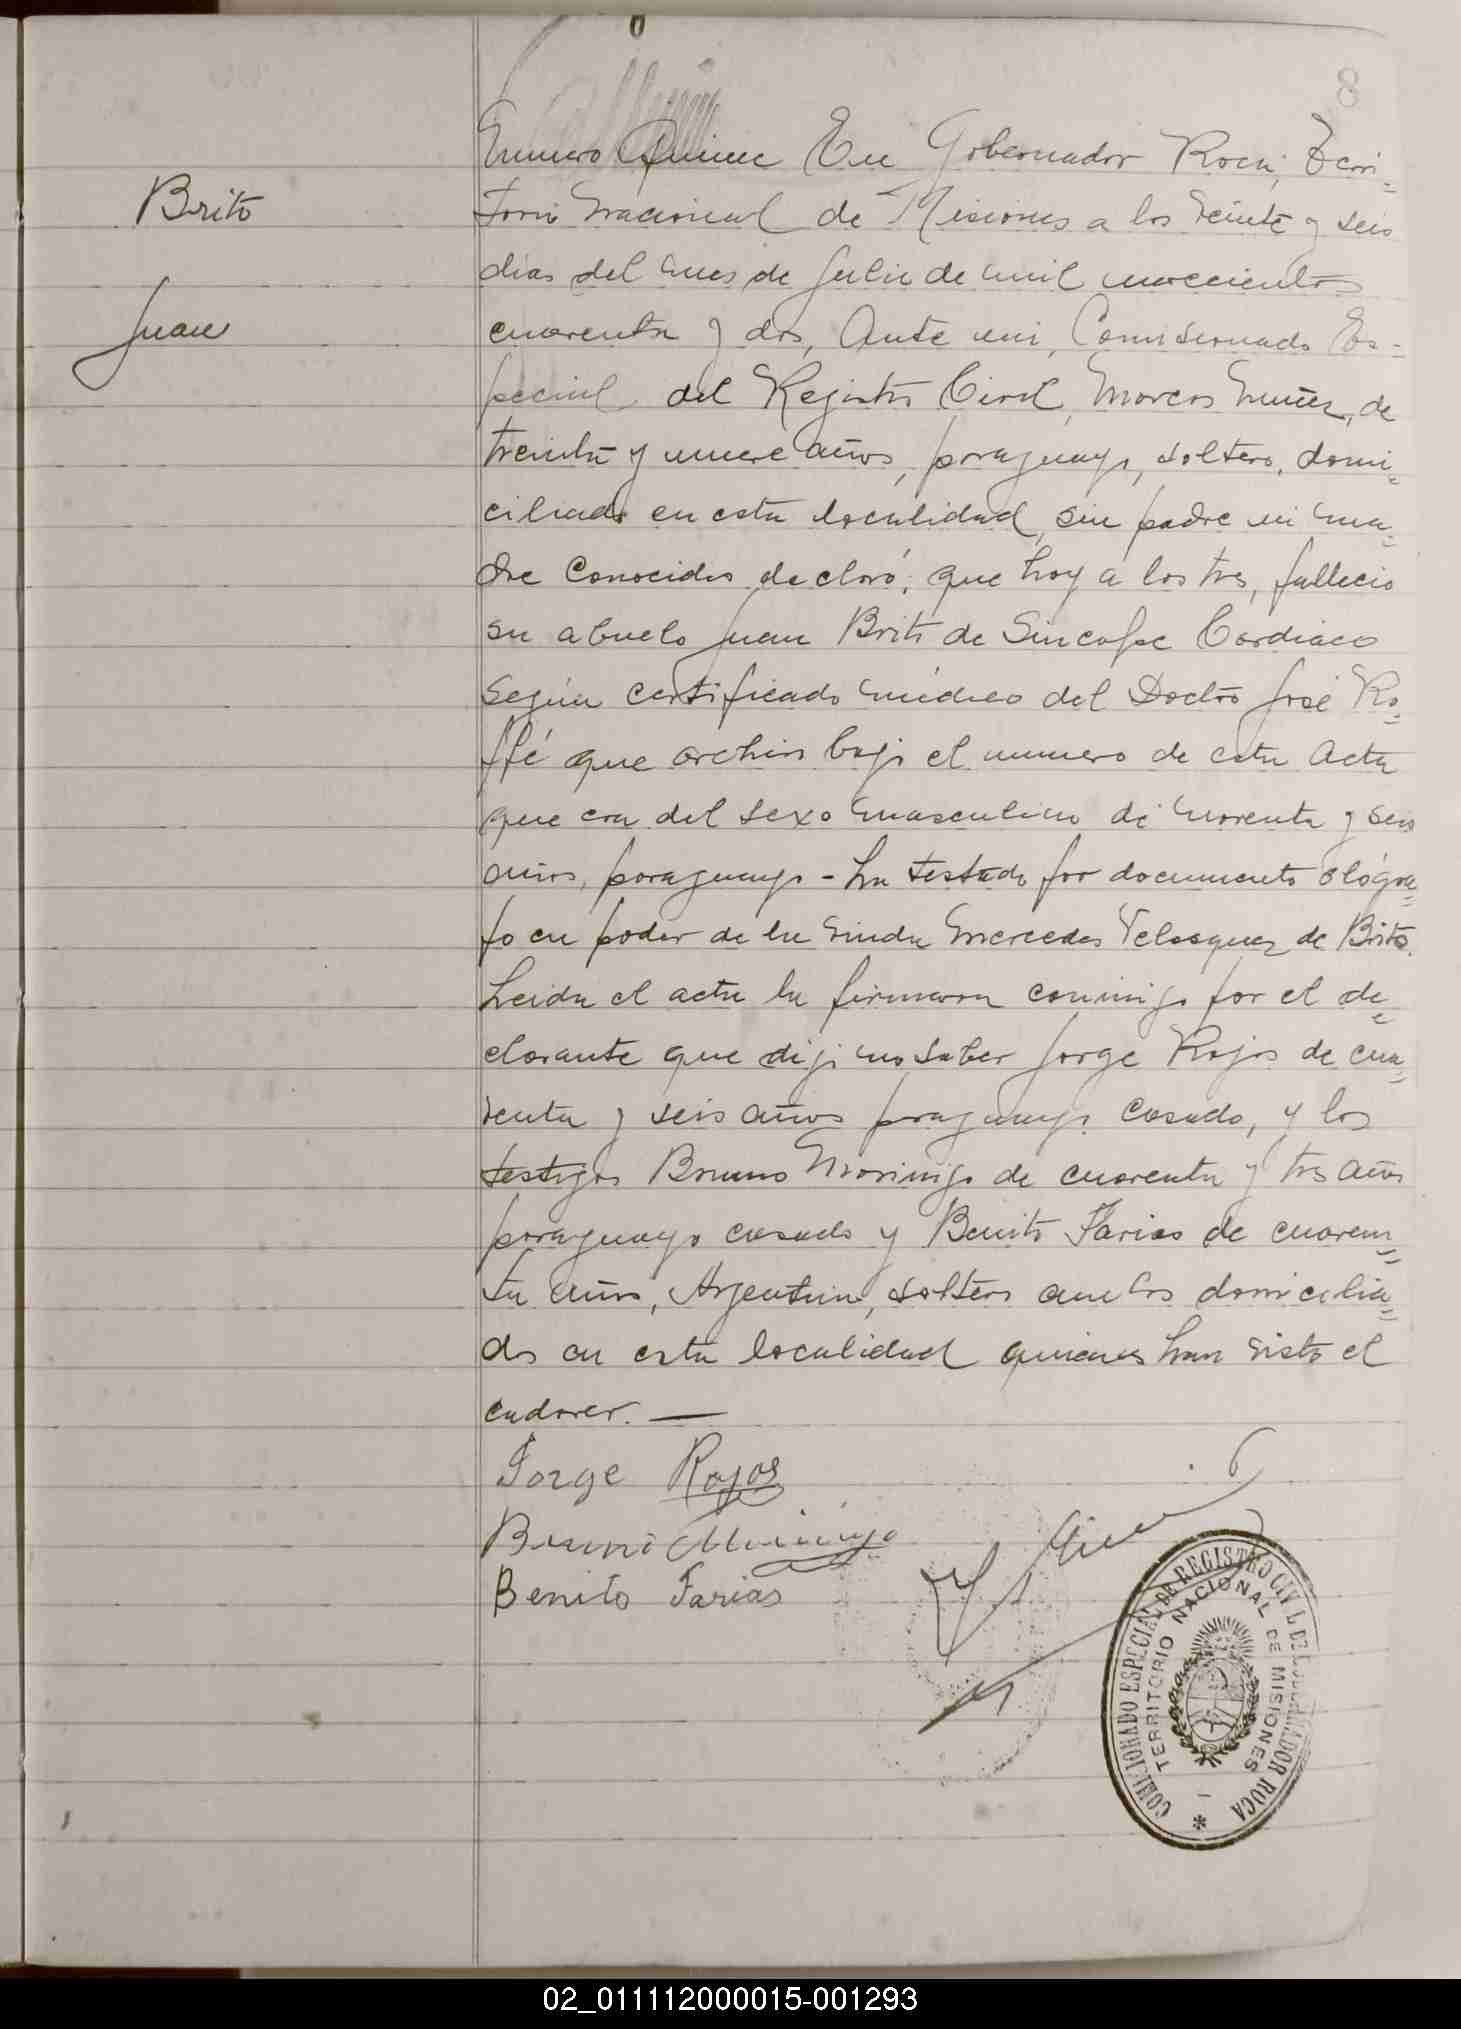 8
Brito
Juan
Número Quince En Gobernador Roca, Terri=
torio Nacional de Misiones a los veinte y seis
días del mes de Julio de mil novecientos
cuarenta y dos, Ante mi, Comisionado Es=
pecial del Registro Civil, Marcos Nuñez, de
treinta y nueve años, paraguayo, soltero, domi=
ciliado en esta localidad, sin padre ni ma=
dre conocidos declaró; que hoy a las tres, falleció
su abuelo Juan Brito de Sincope Cardiaco
según certificado médico del Doctor José Ro=
ffé que archivo bajo el numero de esta Acta
que era del sexo masculino de noventa y seis
años, paraguayo - ha testado por documento ológra=
fo en poder de la viuda Mercedes Velasquez de Brito.
Leida el acta la firmaron conmigo por el de=
clarante que dijo no saber Jorge Rojas de cua=
renta y seis años paraguayo casado, y los
testigos Bruno Morinigo de cuarenta y tres años
paraguayo casado y Benito Farias de cuaren=
ta años, Argentino, soltero ambos domicilia=
dos en esta localidad quienes han visto el
cadaver. —
Jorge Rojas
Bruno Morinigo
Benito Farias
COMISIONADO ESPECIAL DE REGISTRO CIVIL DE GOBERNADOR ROCA
TERRITORIO NACIONAL DE MISIONES
02_011112000015-001293